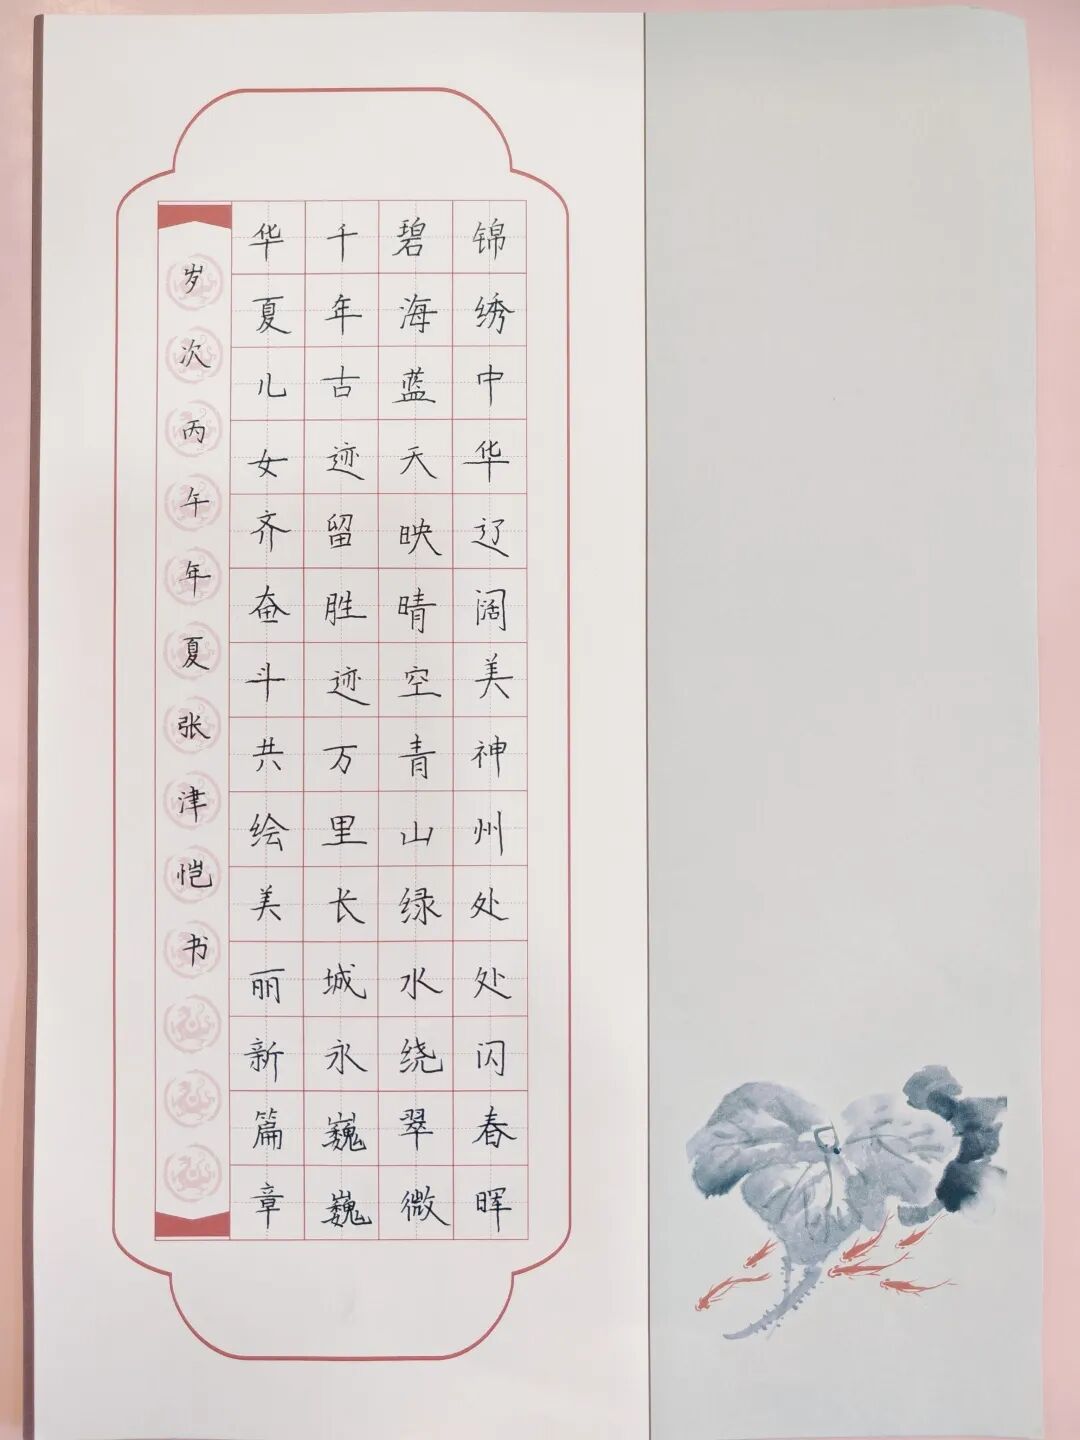 锦绣中华辽阔美神州处处闪春晖
碧海蓝天映晴空青山绿水绕翠微
千年古迹留胜迹万里长城永巍巍
华夏儿女齐奋斗共绘美丽新篇章
岁次丙午年夏张津恺书